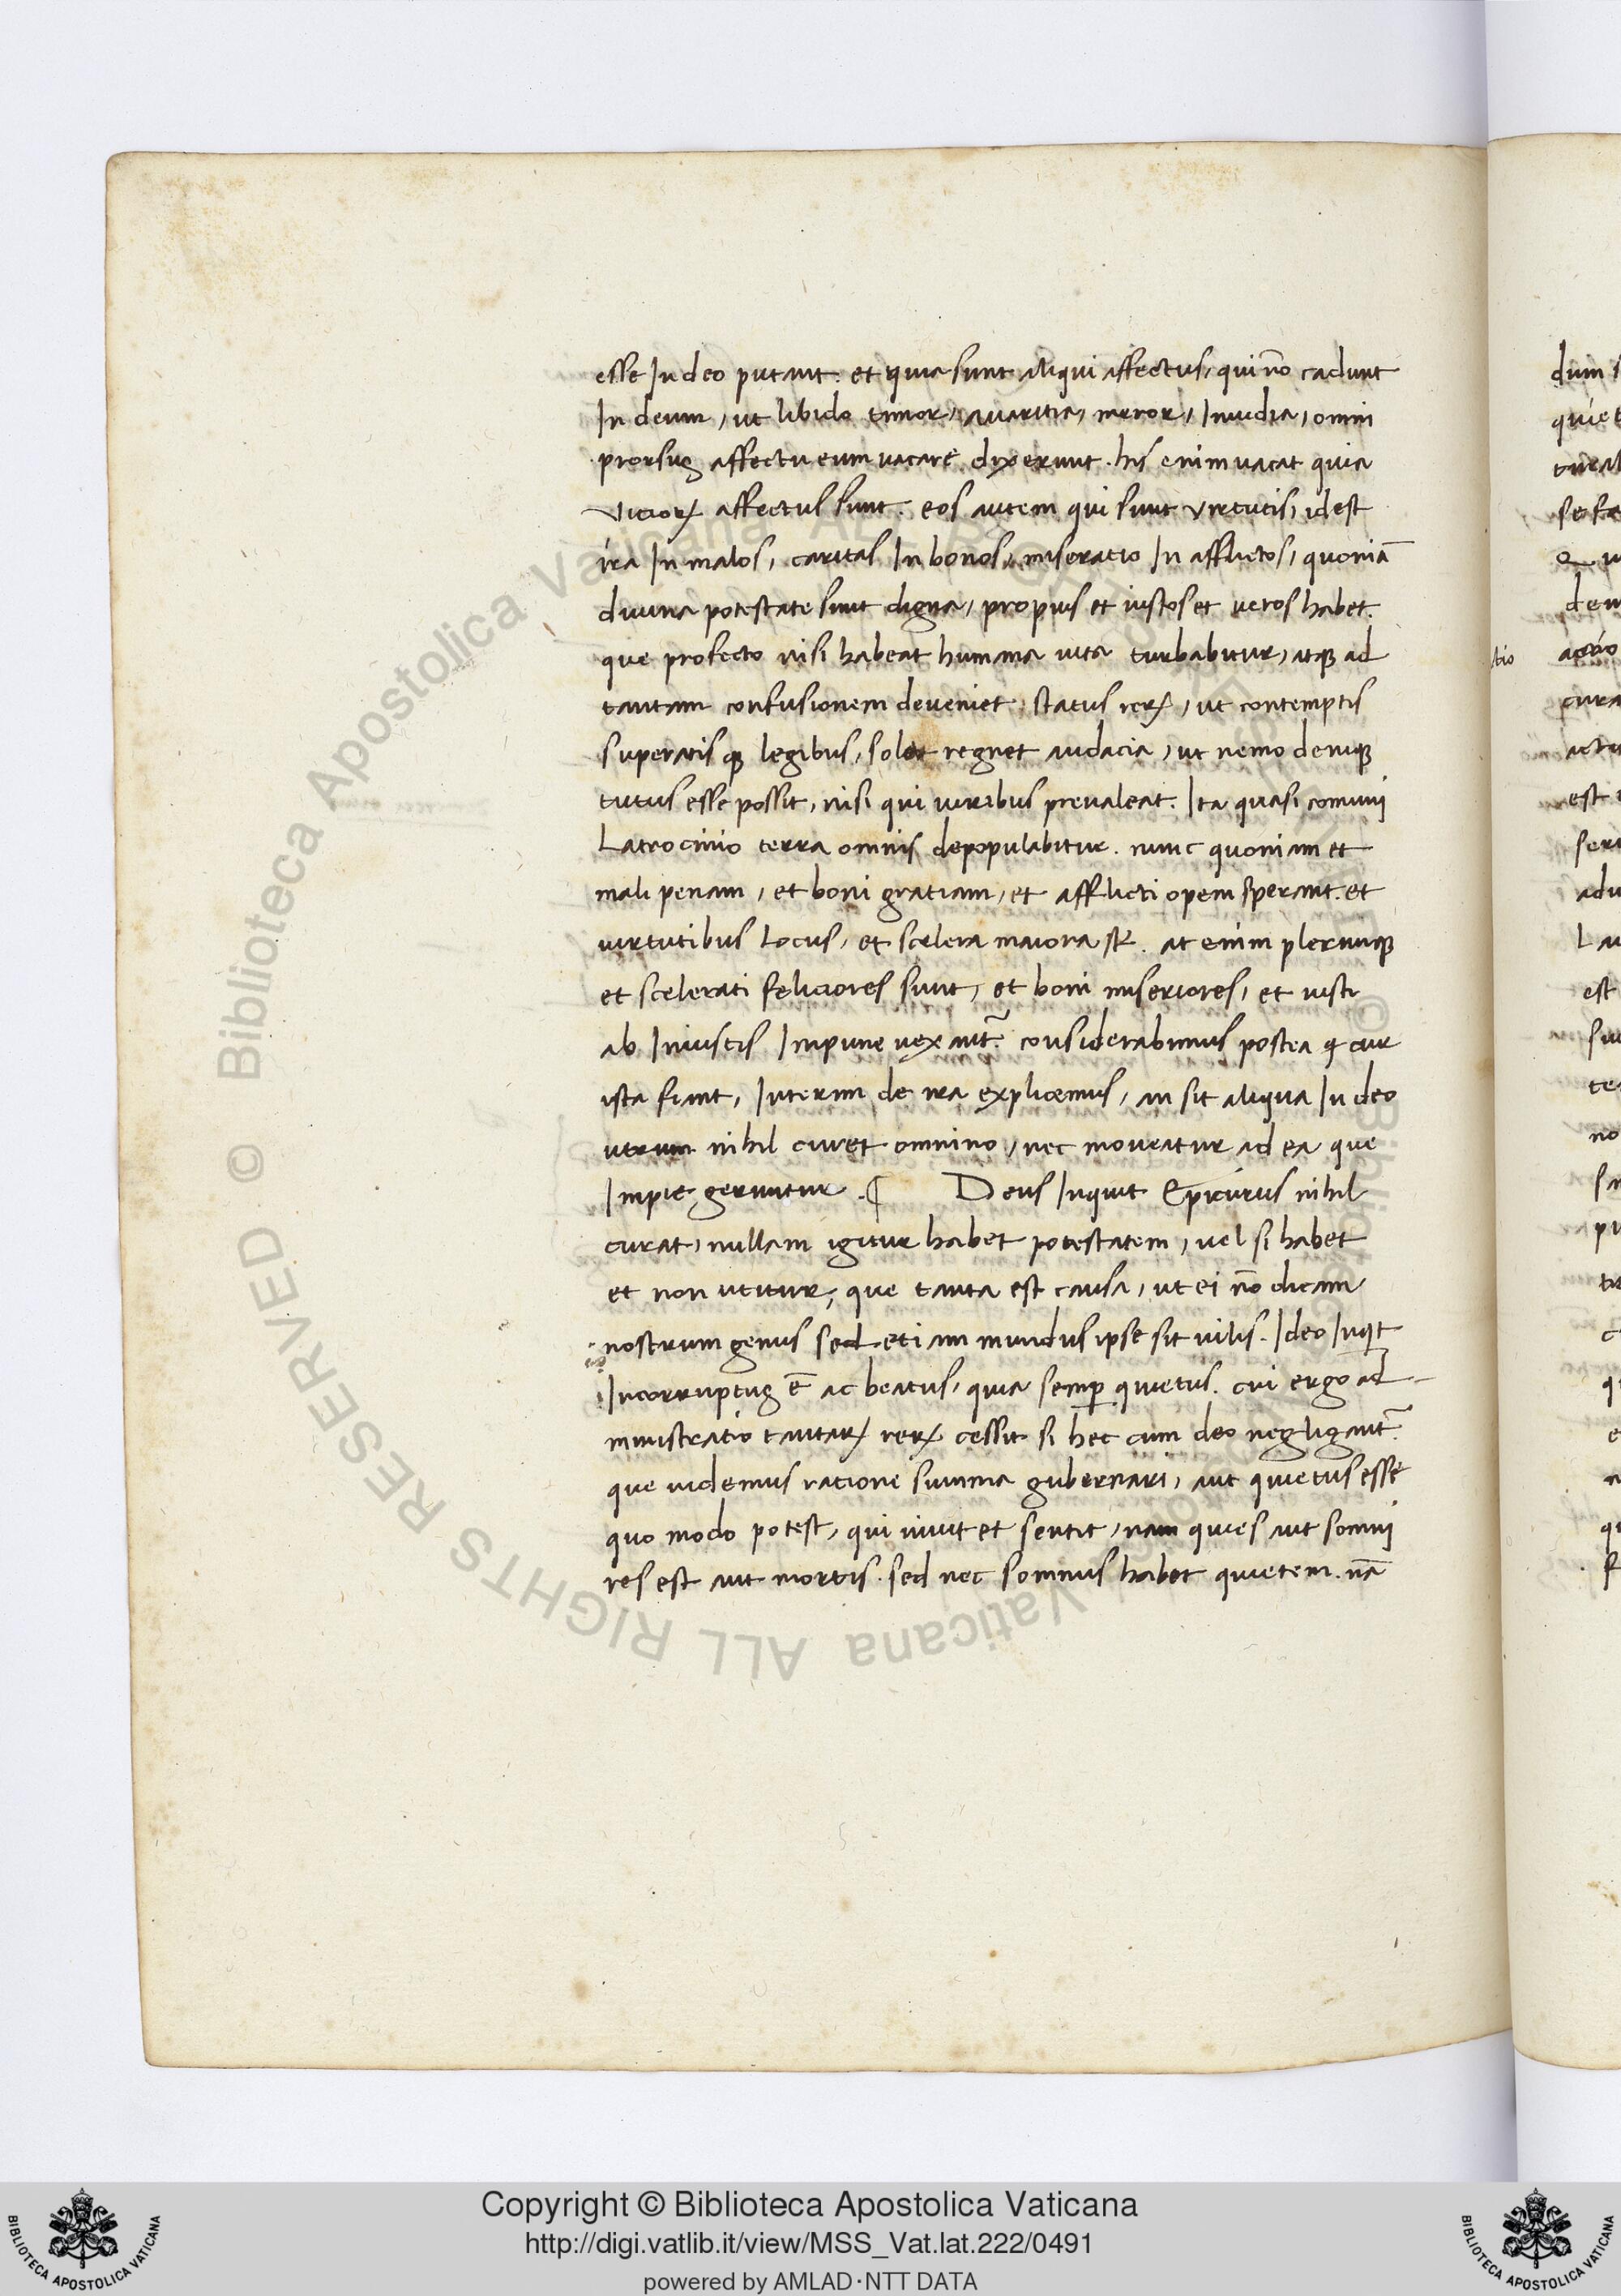 esse In deo putant. et quia sunt aliqui affectus, qui nō cadunt
In deum, ut libido timor, avaritia, meror, Inuidia, omni
prorsus affectu eum vacare dixerunt. his enim vacat quia
vicioꝝ affectus sunt. eos autem qui sunt virtutis, idest
ira In malos, caritas In bonos, miseratio In afflictos, quoniā
divina potestate sunt digna, proprius et iustos et veros habet.
que profecto nisi habeat humana vita turbabitur, atqꝫ ad
tantam confusionem deveniet status reꝝ, ut contemptis
superatisqꝫ legibus, sola regnet audacia, ut nemo deniqꝫ
tutus esse possit, nisi qui viribus prevaleat. Ita quasi comuni
Latrocinio terra omnis depopulabitur. nunc quoniam et
mali penam, et boni gratiam, et afflicti opem sperant. et
virtutibus Locus, et scelera maiora st̄. at enim plerunqꝫ
et scelerati feliciores sunt, et boni miseriores, et iusti
ab Iniustis Impune vexant̃. considerabimus postea cur
ista fiant, Interim de ira explicemus, an sit aliqua In deo
utrum nihil curet omnino, nec moveatur ad ea que
Impie geruntur. Deus Inquit Epicurus nihil
curat, nullam igitur habet potestatem, vel si habet
et non utitur, que tanta est causa, ut ei nō dicam
nostrum genus sed etiam mundus ipse sit vilis. Ideo Inqͥt
Incorruptus ē ac beatus, quia semꝑ quietus. cui ergo ad
ministratio tantaꝝ reꝝ cessit si hec cum deo negligant̃
que videmus ratione summa gubernari, aut quietus esse
quo modo potest, qui vivit et sentit, nam quies aut somni
res est aut mortis. sed nec somnus habet quietem. nā
Copyright © Biblioteca Apostolica Vaticana
http://digi.vatlib.it/view/MSS_Vat.lat.222/0491
powered by AMLAD·NTT DATA
BIBLIOTECA APOSTOLICA VATICANA
BIBLIOTECA APOSTOLICA VATICANA
© Biblioteca Apostolica Vaticana ALL RIGHTS RESERVED